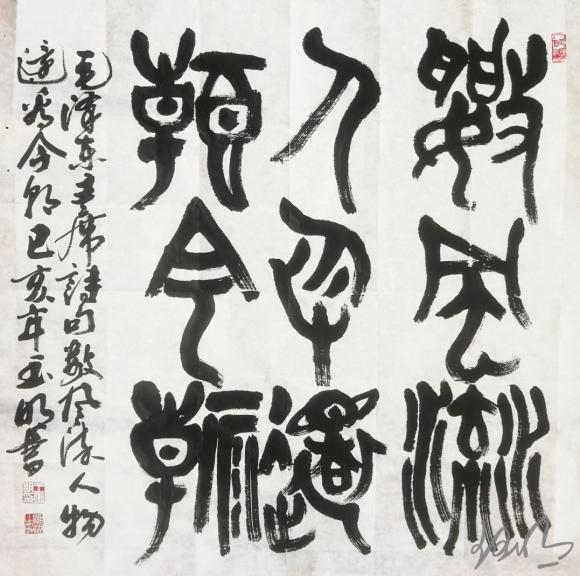 數風流
人物還
看今朝
毛澤東主席詩句數風流人物
還看今朝己亥年玉明書